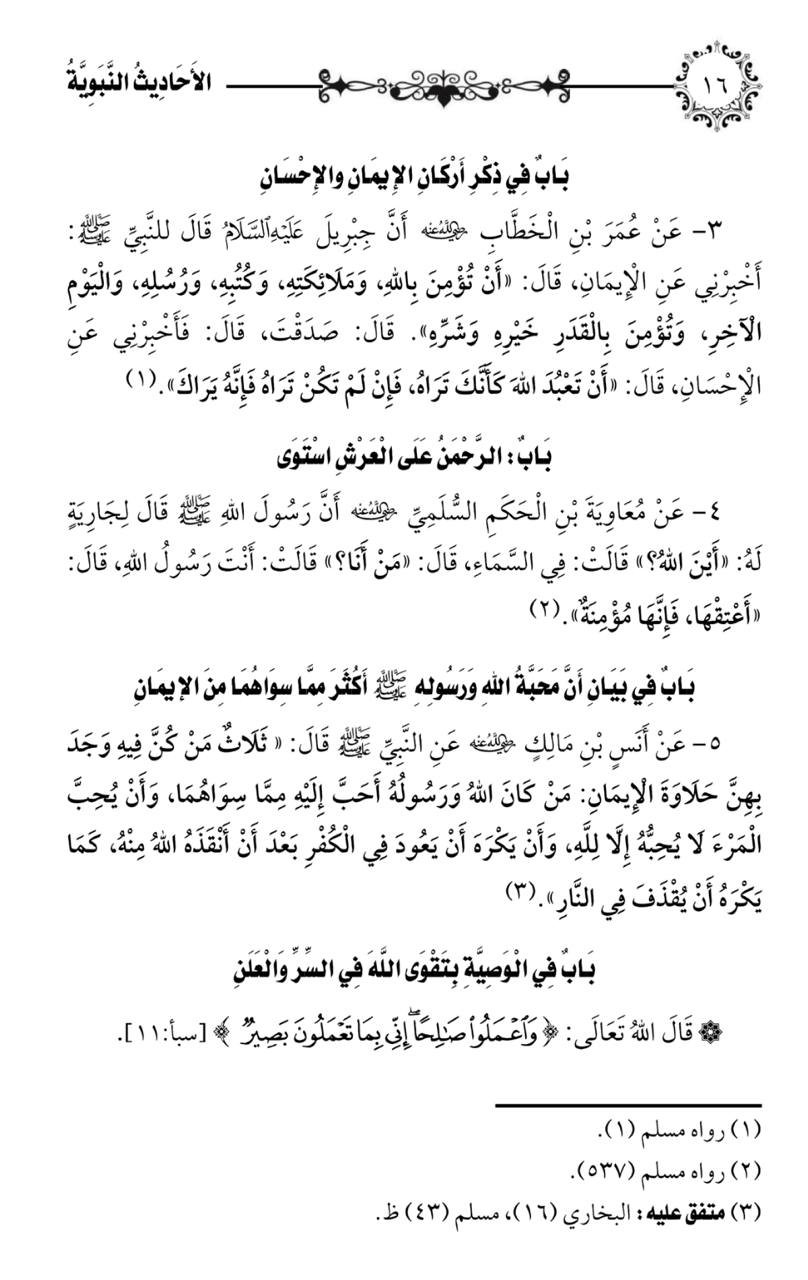 ١٦
الأَحَادِيثُ النَّبَوِيَّةُ
بَابٌ فِي ذِكْرِ أَرْكَانِ الإِيمَانِ والإِحْسَانِ
٣- عَنْ عُمَرَ بْنِ الْخَطَّابِ رضي الله عنه أَنَّ جِبْرِيلَ عَلَيْهِ السَّلَامُ قَالَ للنَّبِيِّ ﷺ:
أَخْبِرْنِي عَنِ الْإِيمَانِ، قَالَ: «أَنْ تُؤْمِنَ بِاللهِ، وَمَلَائِكَتِهِ، وَكُتُبِهِ، وَرُسُلِهِ، وَالْيَوْمِ
الْآخِرِ، وَتُؤْمِنَ بِالْقَدَرِ خَيْرِهِ وَشَرِّهِ». قَالَ: صَدَقْتَ، قَالَ: فَأَخْبِرْنِي عَنِ
الْإِحْسَانِ، قَالَ: «أَنْ تَعْبُدَ اللهَ كَأَنَّكَ تَرَاهُ، فَإِنْ لَمْ تَكُنْ تَرَاهُ فَإِنَّهُ يَرَاكَ».(١)
بَابٌ: الرَّحْمَنُ عَلَى الْعَرْشِ اسْتَوَى
٤- عَنْ مُعَاوِيَةَ بْنِ الْحَكَمِ السُّلَمِيِّ رضي الله عنه أَنَّ رَسُولَ اللهِ ﷺ قَالَ لِجَارِيَةٍ
لَهُ: «أَيْنَ اللهُ؟» قَالَتْ: فِي السَّمَاءِ، قَالَ: «مَنْ أَنَا؟» قَالَتْ: أَنْتَ رَسُولُ اللهِ، قَالَ:
«أَعْتِقْهَا، فَإِنَّهَا مُؤْمِنَةٌ».(٢)
بَابٌ فِي بَيَانِ أَنَّ مَحَبَّةُ اللهِ وَرَسُولِهِ ﷺ أَكْثَرَ مِمَّا سِوَاهُمَا مِنَ الإِيمَانِ
٥- عَنْ أَنَسِ بْنِ مَالِكٍ رضي الله عنه عَنِ النَّبِيِّ ﷺ قَالَ: « ثَلَاثٌ مَنْ كُنَّ فِيهِ وَجَدَ
بِهِنَّ حَلَاوَةَ الْإِيمَانِ: مَنْ كَانَ اللهُ وَرَسُولُهُ أَحَبَّ إِلَيْهِ مِمَّا سِوَاهُمَا، وَأَنْ يُحِبَّ
الْمَرْءَ لَا يُحِبُّهُ إِلَّا لِلَّهِ، وَأَنْ يَكْرَهَ أَنْ يَعُودَ فِي الْكُفْرِ بَعْدَ أَنْ أَنْقَذَهُ اللهُ مِنْهُ، كَمَا
يَكْرَهُ أَنْ يُقْذَفَ فِي النَّارِ».(٣)
بَابٌ فِي الْوَصِيَّةِ بِتَقْوَى اللَّهَ فِي السِّرِّ وَالْعَلَنِ
۞ قَالَ اللهُ تَعَالَى: ﴿ وَٱعْمَلُواْ صَٰلِحًاۖ إِنِّى بِمَا تَعْمَلُونَ بَصِيرٌ ﴾ [سبأ:١١].
(١) رواه مسلم (١).
(٢) رواه مسلم (٥٣٧).
(٣) متفق عليه: البخاري (١٦)، مسلم (٤٣) ظ.